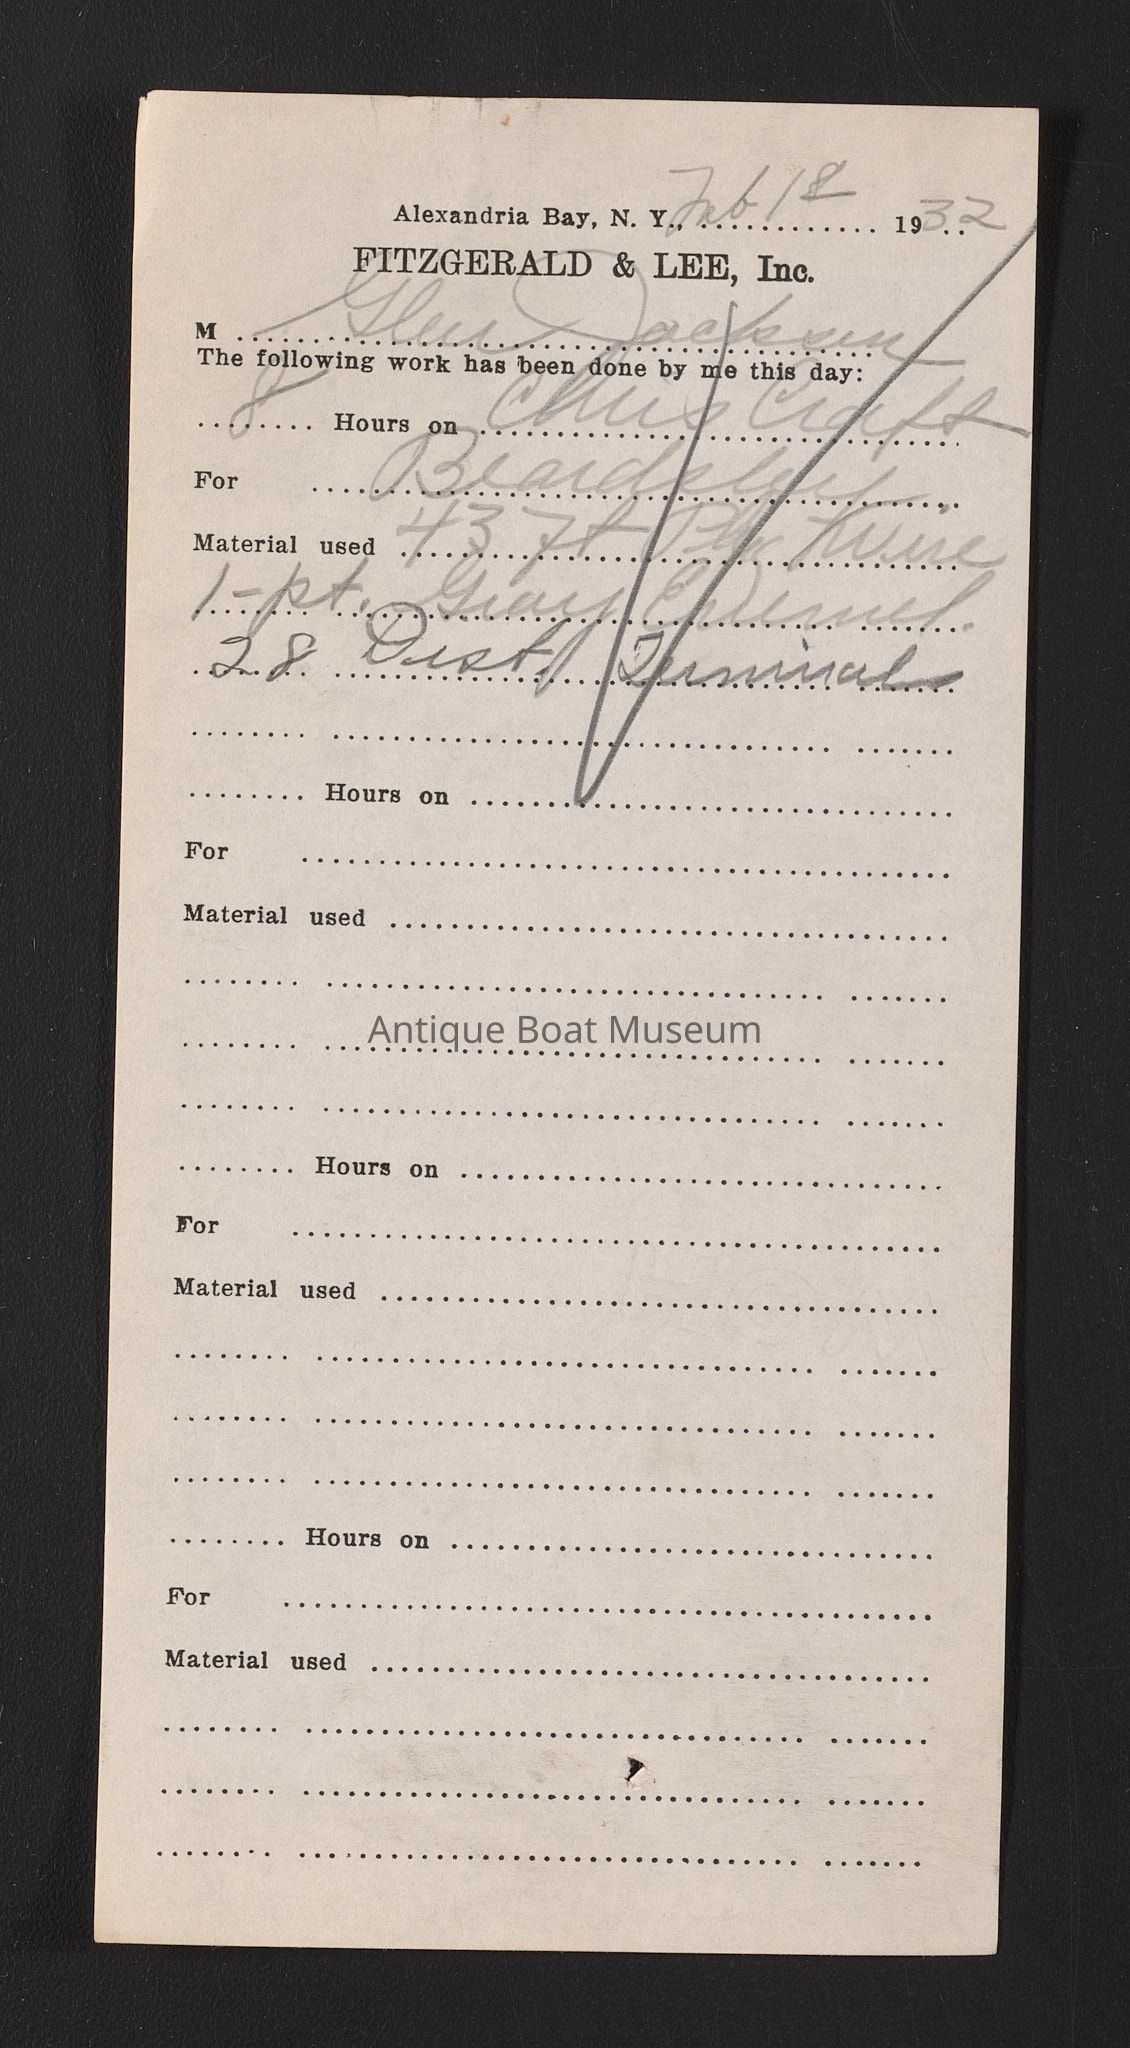 Alexandria Bay, N. Y., Feb 18 1932
FITZGERALD & LEE, Inc.
M Glen Jackson
The following work has been done by me this day:
8 Hours on Chris Craft
For Beardsley
Material used 43 ft Wire
1-pt. Gray Enamel.
28 Dist. Terminals
Hours on
For
Material used
Antique Boat Museum
Hours on
For
Material used
Hours on
For
Material used